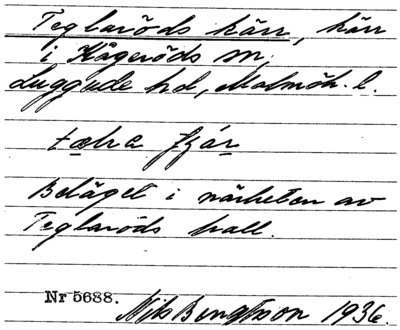 Teglaröds kärr, kärr
i Kågeröds sn,
Luggude hd, Malmöh. l.
tæhra fjár
Beläget i närheten av
Teglaröds hall.
Nr 5688.
Nils Bengtsson 1936.